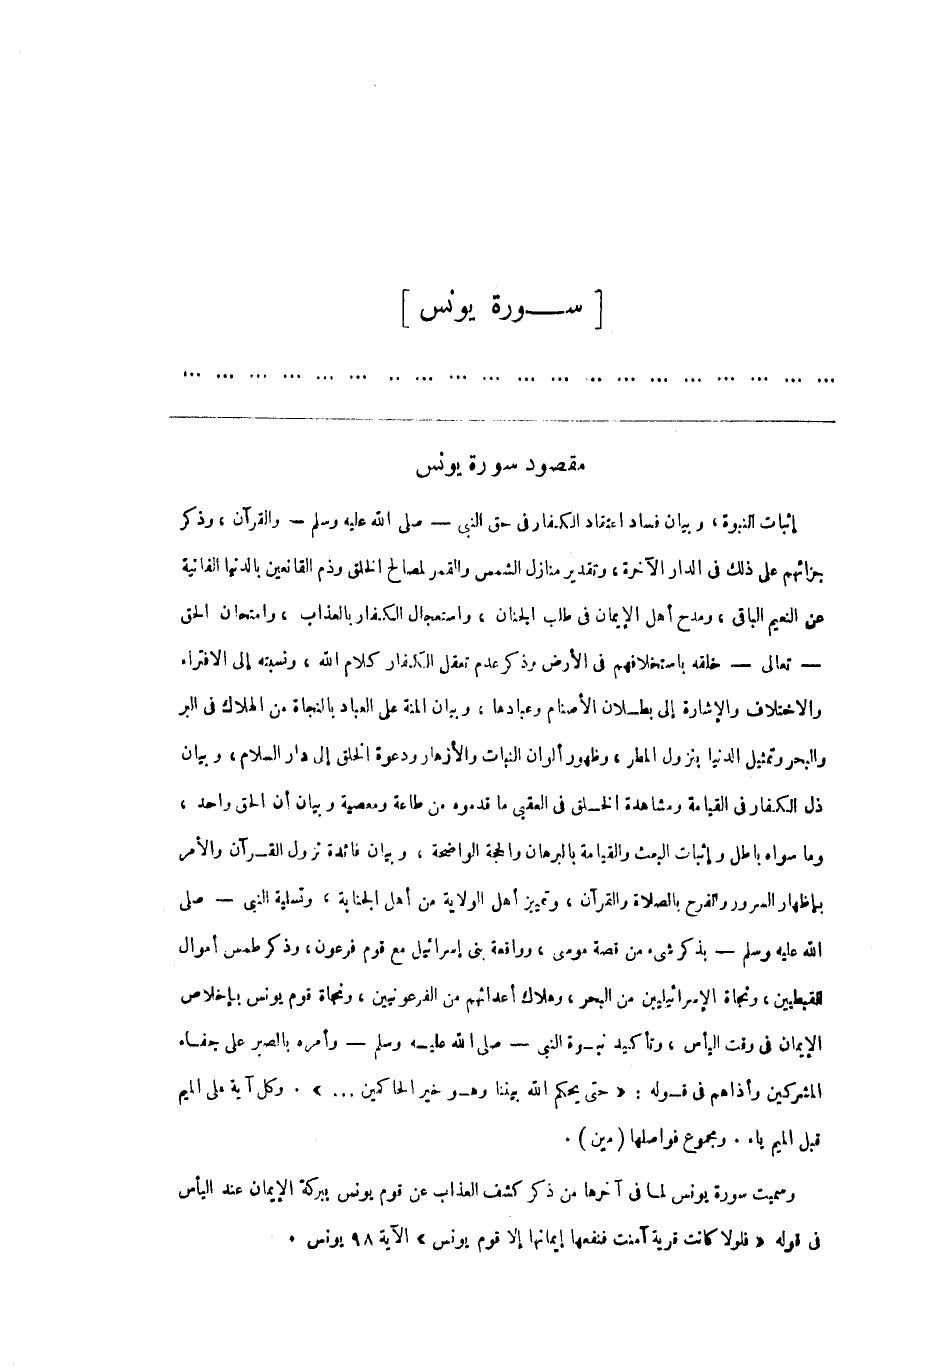 [ ســـورة يونس ]
... ... ... ... ... ... ... ... .. ... ... ... ... .. ... ... ... ... ... ...
مقصود سورة يونس
إثبات النبوة ، وبيان فساد اعتقاد الكفار فى حق النبى — صلى الله عليه وسلم — والقرآن ، وذكر
جزائهم على ذلك فى الدار الآخرة ، وتقدير منازل الشمس والقمر لمصالح الخلق وذم القانعين بالدنيا الفانية
عن النعيم الباقى ، ومدح أهل الإيمان فى طلب الجنان ، واستعجال الكفار بالعذاب ، وامتحان الحق
— تعالى — خلقه باستخلافهم فى الأرض وذكر عدم تعقل الكفار كلام الله ، ونسبته إلى الافتراء
والاختلاف والإشارة إلى بطـلان الأصنام وعبادها ، وبيان المنة على العباد بالنجاة من الهلاك فى البر
والبحر وتمثيل الدنيا بنزول المطر ، وظهور ألوان النبات والأزهار ودعوة الخلق إلى دار السلام ، وبيان
ذل الكفار فى القيامة ومشاهدة الخـلق فى العقبى ما قدموه من طاعة ومعصية وبيان أن الحق واحد ،
وما سواه باطل وإثبات البعث والقيامة بالبرهان والحجة الواضحة ، وبيان فائدة نزول القـرآن والأمر
بإظهار السرور والفرح بالصلاة والقرآن ، وتمييز أهل الولاية من أهل الجناية ، وتسلية النبى — صلى
الله عليه وسلم — بذكر شىء من قصة موسى ، وواقعة بنى إسرائيل مع قوم فرعون ، وذكر طمس أموال
القبطيين ، ونجاة الإسرائيليين من البحر ، وهلاك أعدائهم من الفرعونيين ، ونجاة قوم يونس بإخلاص
الإيمان فى وقت اليأس ، وتأكيد نبـوة النبى — صلى الله عليـه وسلم — وأمره بالصبر على جفـاء
المشركين وأذاهم فى قـوله : « حتى يحكم الله بيننا وهـو خير الحاكمين ... » . وكل آية على الميم
قبل الميم ياء . ومجموع فواصلها ( مين ) .
وسميت سورة يونس لما فى آخرها من ذكر كشف العذاب عن قوم يونس ببركة الإيمان عند اليأس
فى قوله « فلولا كانت قرية آمنت فنفعها إيمانها إلا قوم يونس » الآية ٩٨ يونس .